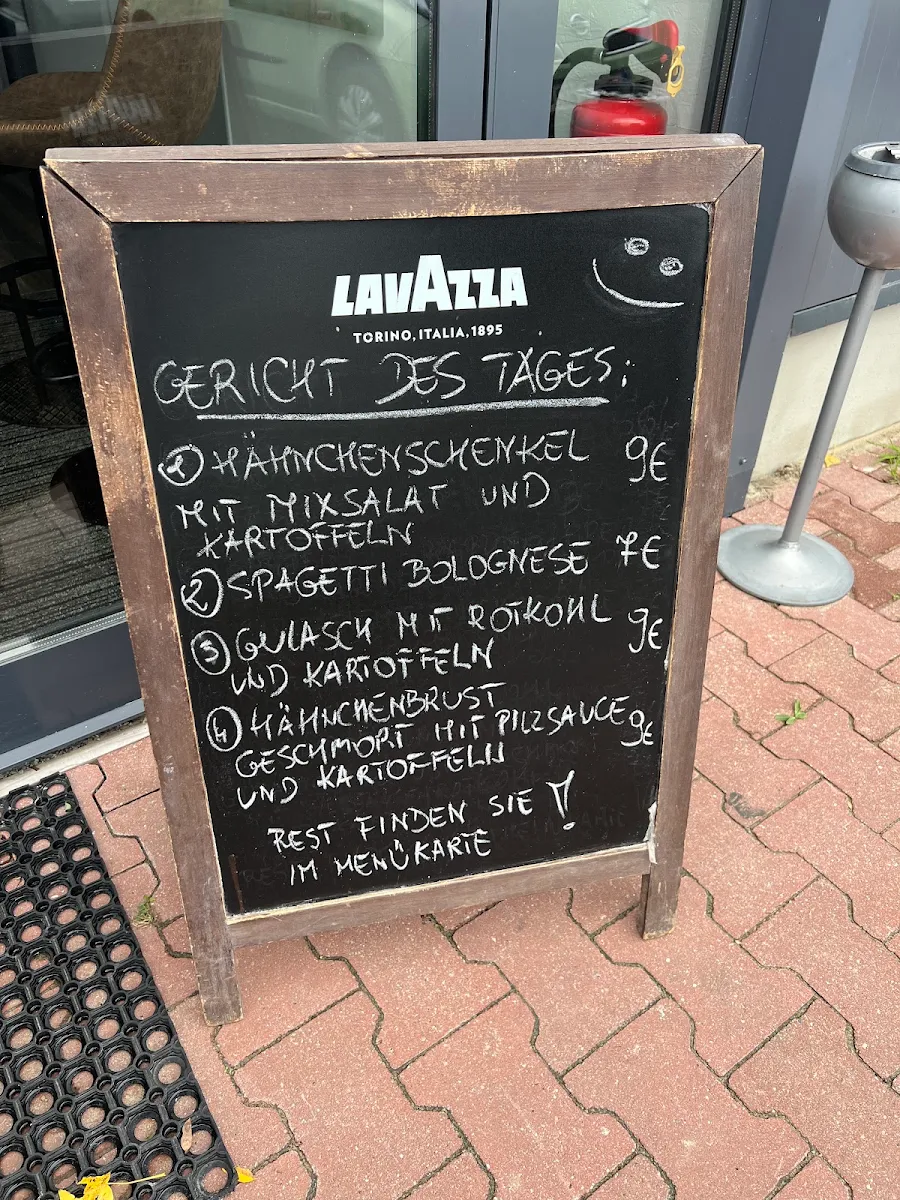 LAVAZZA
TORINO, ITALIA, 1895
GERICHT DES TAGES:
1 HÄHNCHENSCHENKEL 9€
MIT MIXSALAT UND
KARTOFFELN
2 SPAGETTI BOLOGNESE 7€
3 GULASCH MIT ROTKOHL 9€
UND KARTOFFELN
4 HÄHNCHENBRUST
GESCHMORT MIT PILZSAUCE 9€
UND KARTOFFELN
REST FINDEN SIE !
IM MENÜKARTE